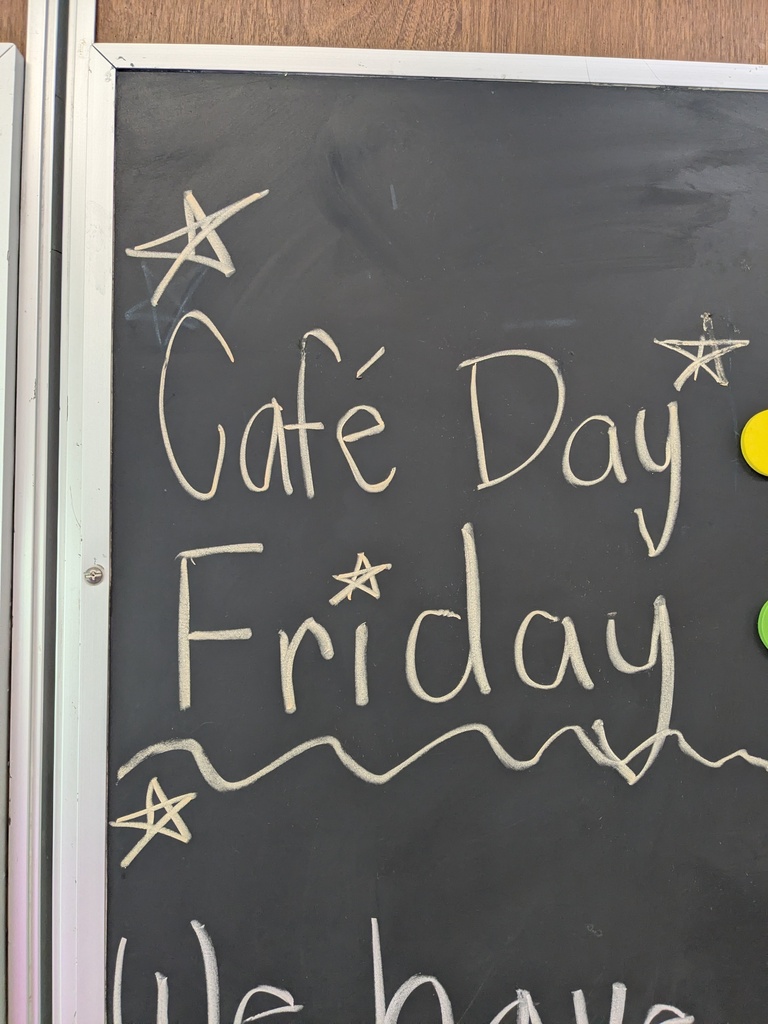 Café Day
Friday
We have